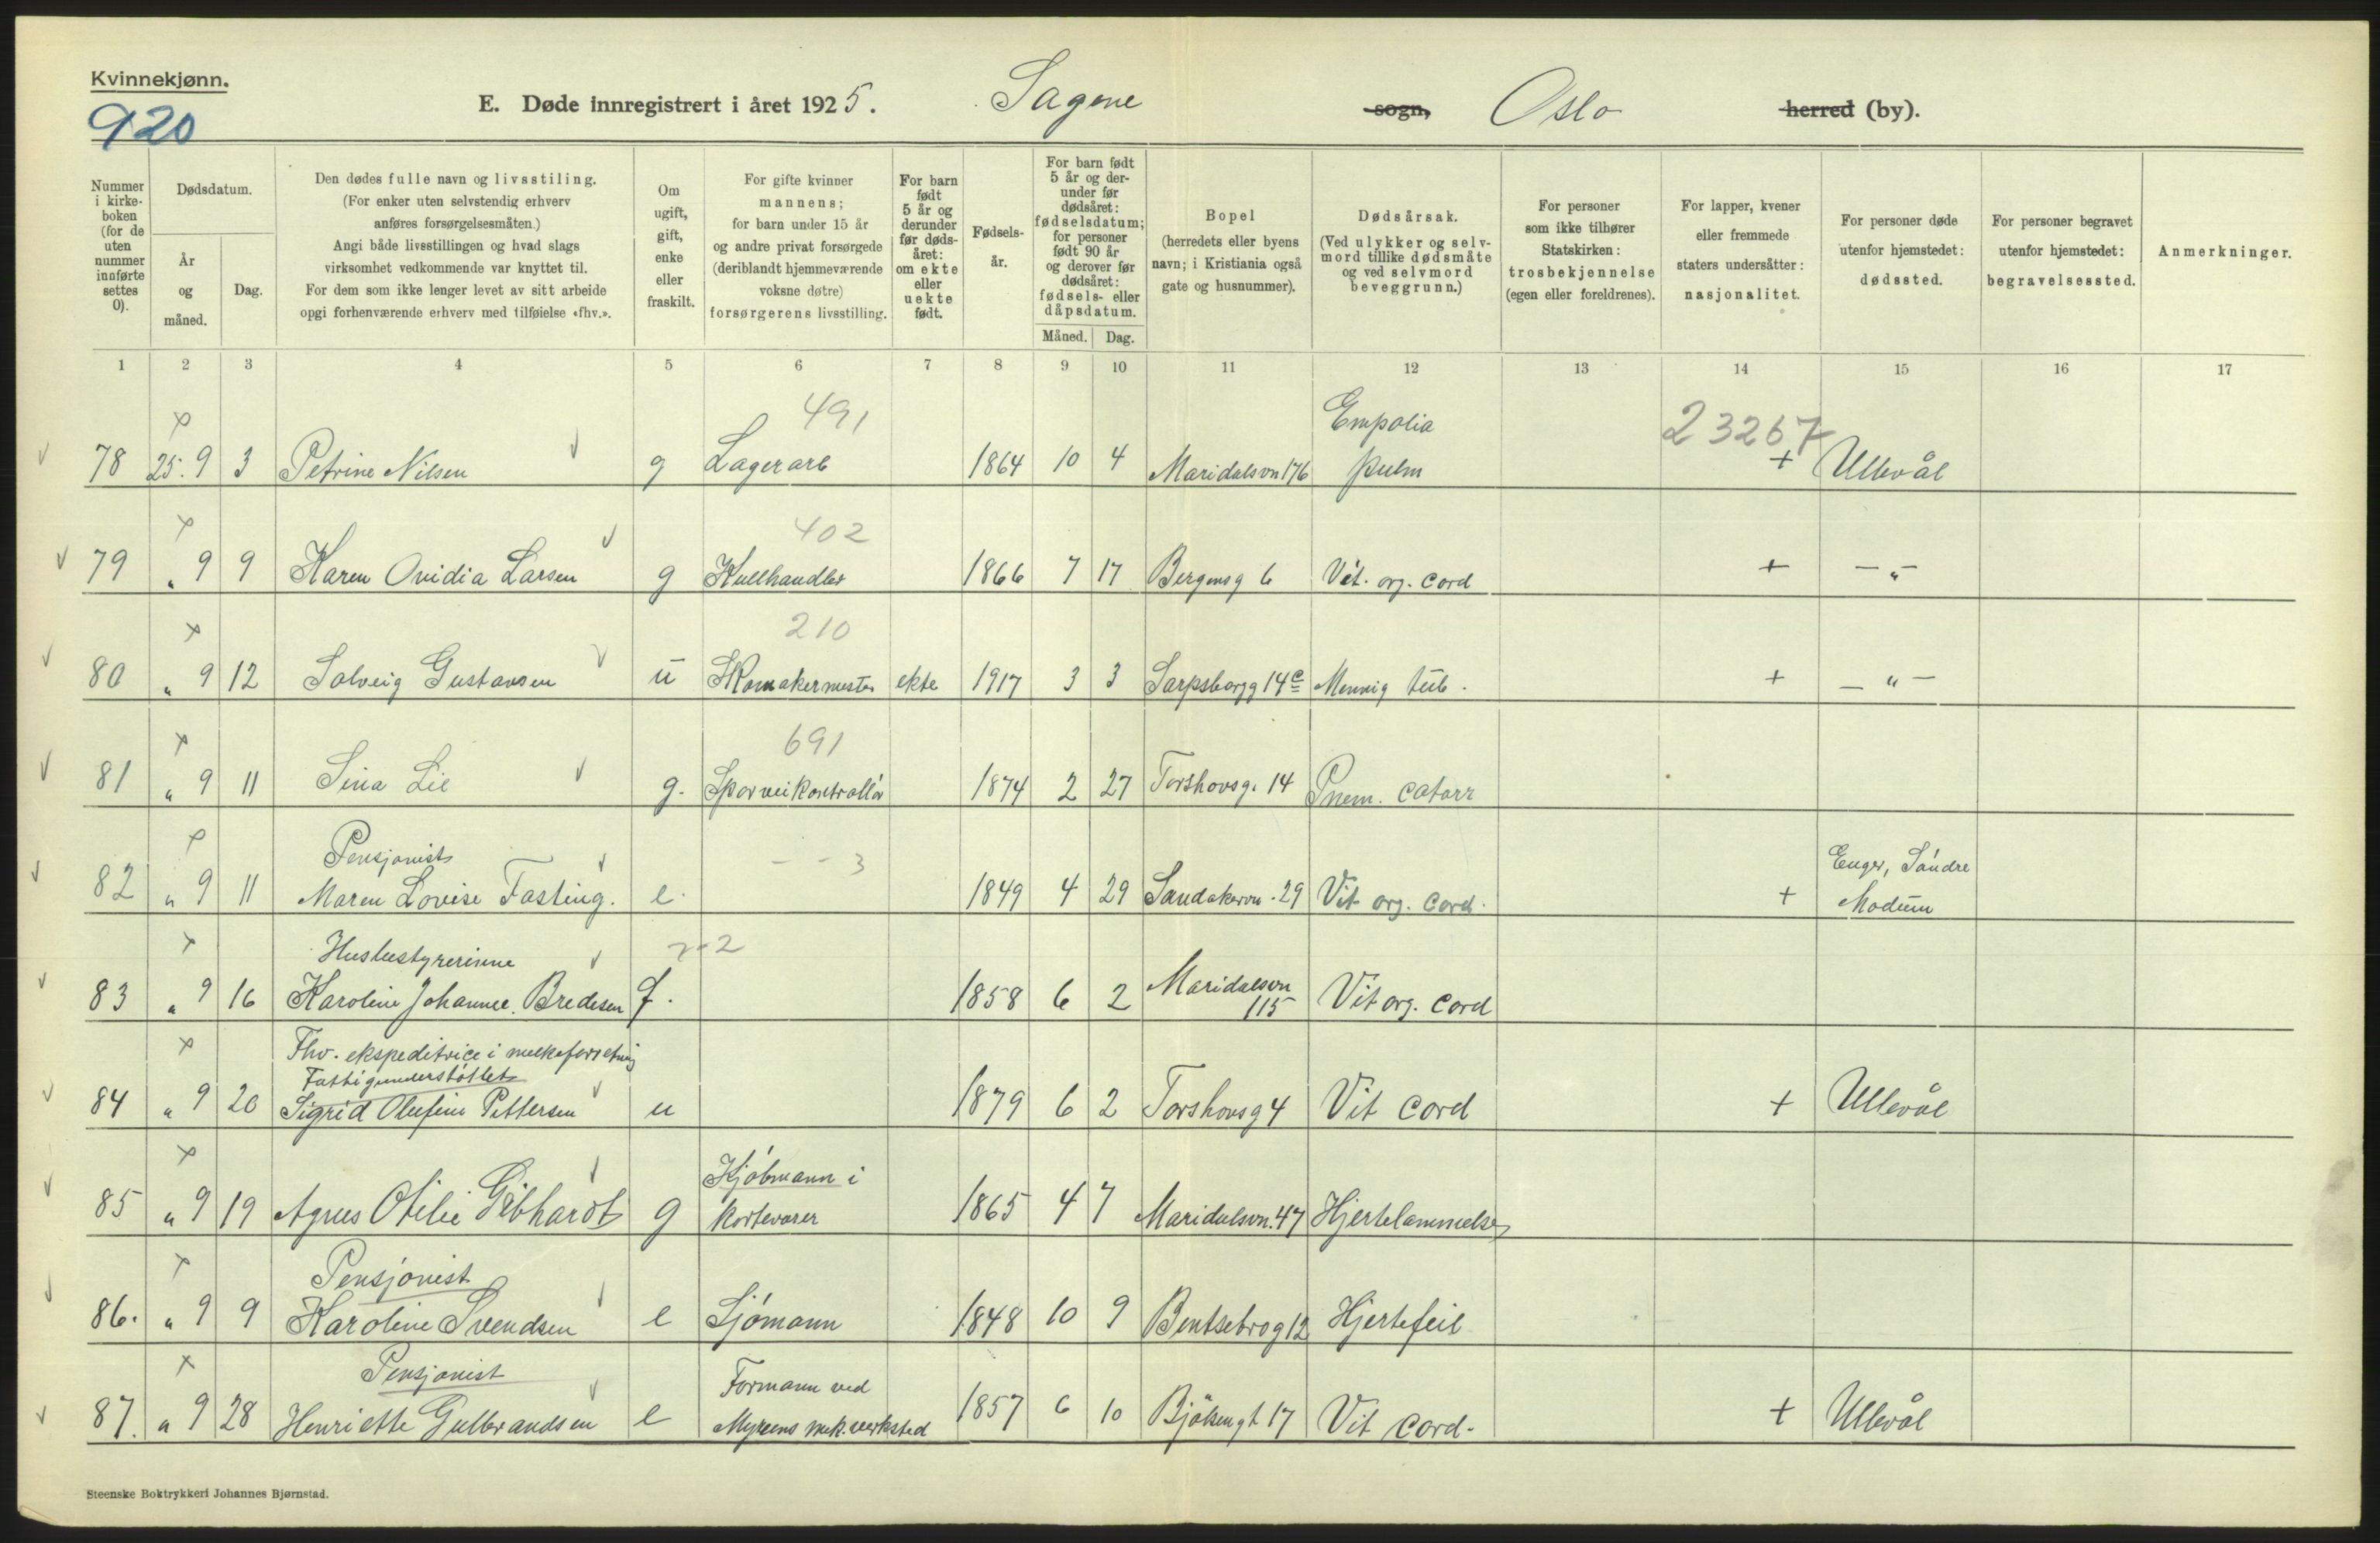 Kvinnekjønn.
920
E. Døde innregistrert i året 1925. Sagene sogn, Oslo herred (by).
Nummer i kirkeboken (for de uten nummer innførte settes 0).
Dødsdatum.
År og måned.
Dag.
Den dødes fulle navn og livsstiling.
(For enker uten selvstendig erhverv
anføres forsørgelsesmåten.)
Angi både livsstillingen og hvad slags
virksomhet vedkommende var knyttet til.
For dem som ikke lenger levet av sitt arbeide
opgi forhenværende erhverv med tilføielse «fhv.».
Om ugift, gift, enke eller fraskilt.
For gifte kvinner
mannens;
for barn under 15 år
og andre privat forsørgede
(deriblandt hjemmeværende
voksne døtre)
forsørgerens livsstilling.
For barn født 5 år og derunder før dødsåret: om ekte eller uekte født.
Fødselsår.
For barn født 5 år og derunder før dødsåret: fødselsdatum; for personer født 90 år og derover før dødsåret: fødsels- eller dåpsdatum.
Måned.
Dag.
Bopel
(herredets eller byens
navn; i Kristiania også
gate og husnummer).
Dødsårsak.
(Ved ulykker og selvmord tillike dødsmåte
og ved selvmord
beveggrunn.)
For personer
som ikke tilhører
Statskirken:
trosbekjennelse
(egen eller foreldrenes).
For lapper, kvener
eller fremmede
staters undersåtter:
nasjonalitet.
For personer døde
utenfor hjemstedet:
dødssted.
For personer begravet
utenfor hjemstedet:
begravelsessted.
Anmerkninger.
1 2 3 4 5 6 7 8 9 10 11 12 13 14 15 16 17
491 Empolia 23267
78 25. 9 3 Petrine Nilsen g Lagerarb 1864 10 4 Maridalsvn 176 pulm + Ullevål
402
79 " 9 9 Karen Ovidia Larsen g Kullhandler 1866 7 17 Bergensg 6 Vit. org. cord + — " —
210
80 " 9 12 Solveig Gustavsen u Skomakermester ekte 1917 3 3 Sarpsborgg 14c Mening tub. + — " —
691
81 " 9 11 Sina Lie g. Sporveikontrollör 1874 2 27 Torshovsg. 14 Pnem. catarr
Pensjonist - - 3 Enger, Söndre
82 " 9 11 Maren Lovise Fasting. e. 1849 4 29 Sandakervn. 29 Vit org. cord. + Modum
Husbestyrerinne
83 " 9 16 Karoline Johanne Bredesen f. 1858 6 2 Maridalsvn 115 Vit org. cord
Fhv. ekspeditrice i melkeforretning
Fattigunderstöttet
84 " 9 20 Sigrid Olufine Pettersen u 1879 6 2 Torshovsg 4 Vit cord + Ullevål
Kjöbmann i
85 " 9 19 Agnes Otilie Gebhardt g kortevarer 1865 4 7 Maridalsvn. 47 Hjertelammelse
Pensjonist
86. " 9 9 Karoline Svendsen e Sjömann 1848 10 9 Bentsebrog 12 Hjertefeil
Pensjonist Formann ved
87. " 9 28 Henriette Gulbrandsen e Myrens mek. verksted 1857 6 10 Bjölsengt 17 Vit cord. + Ullevål
Steenske Boktrykkeri Johannes Bjørnstad.